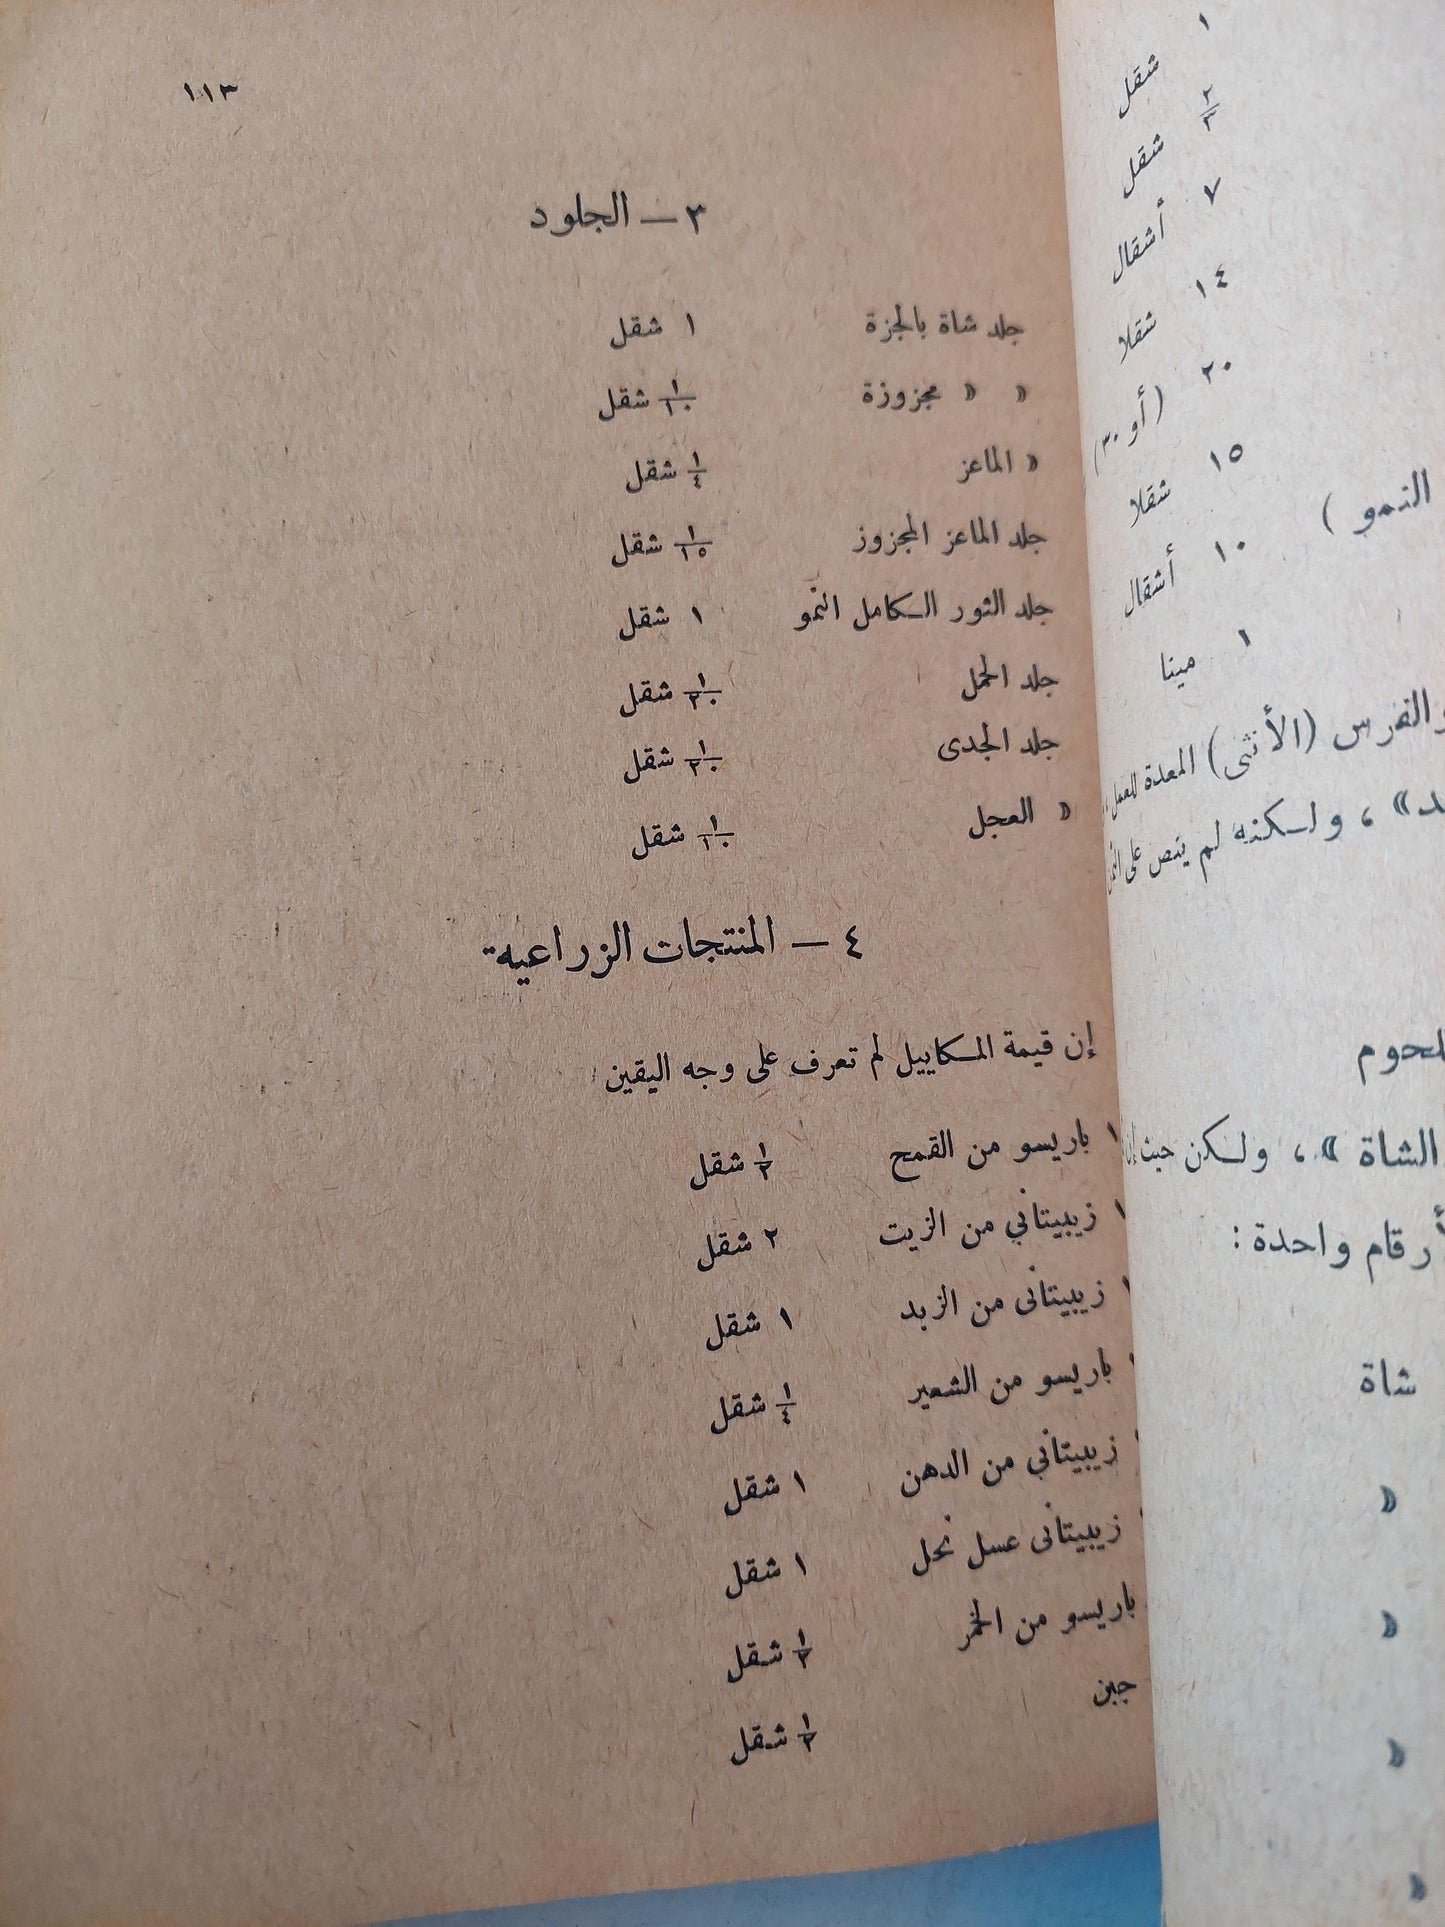 ١١٣
٣ — الجلود
جلد شاة بالجزة ١ شقل
» » مجزوزة ١/١٠ شقل
» الماعز ١/٤ شقل
جلد الماعز المجزوز ١/١٥ شقل
جلد الثور الكامل النمو ١ شقل
جلد الحمل ١/٢٠ شقل
جلد الجدى ١/٢٠ شقل
» العجل ١/١٠ شقل
٤ — المنتجات الزراعية
إن قيمة المكاييل لم تعرف على وجه اليقين
١ باريسو من القمح ١/٢ شقل
١ زيبيتاني من الزيت ٢ شقل
١ زيبيتانى من الزبد ١ شقل
باريسو من الشعير ١/٤ شقل
زيبيتاني من الدهن ١ شقل
زيبيتانى عسل نحل ١ شقل
باريسو من الخمر ١/٢ شقل
جبن ١/٢ شقل
١ شقل
٢/٣ شقل
٧ أشقال
١٤ شقلا
٢٠ (أو ٣٠)
١٥ شقلا
النمو ) ١٠ أشقال
١ مينا
والفرس (الأنثى) المعدة للعمل
» ، ولكنه لم ينص على
الشاة » ، ولكن حيث
أرقام واحدة :
شاة
»
»
»
»